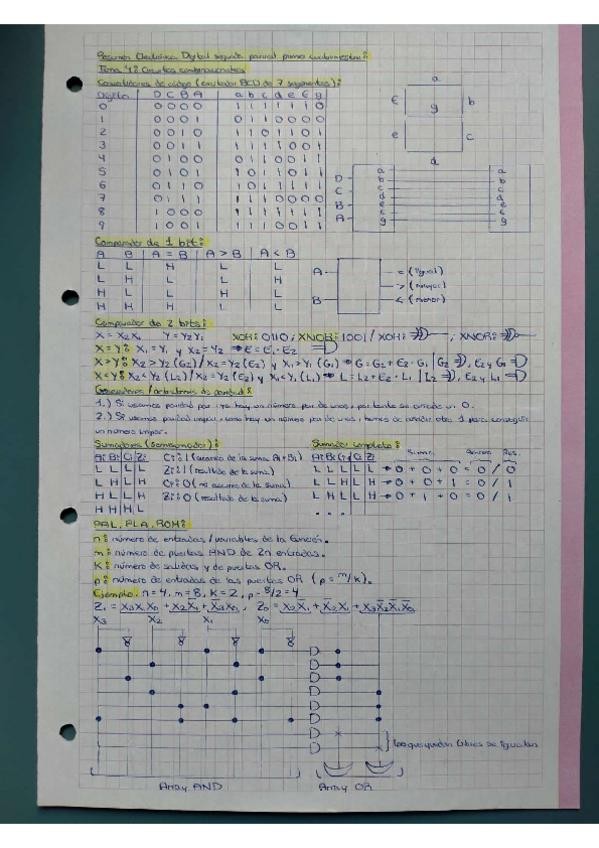 Resumen Electrónica Digital segundo parcial primer cuatrimestre:
Tema 4: Circuitos combinacionales
Convertidores de código (contador BCD de 7 segmentos):
Dígito D C B A a b c d e f g
0 0 0 0 0 1 1 1 1 1 1 0
1 0 0 0 1 0 1 1 0 0 0 0
2 0 0 1 0 1 1 0 1 1 0 1
3 0 0 1 1 1 1 1 1 0 0 1
4 0 1 0 0 0 1 1 0 0 1 1
5 0 1 0 1 1 0 1 1 0 1 1
6 0 1 1 0 1 0 1 1 1 1 1
7 0 1 1 1 1 1 1 0 0 0 0
8 1 0 0 0 1 1 1 1 1 1 1
9 1 0 0 1
a
f b
g
e c
d
D
C
B
A
a a
b b
c c
d d
e e
f f
g g
Comparador de 1 bit:
A B A = B A > B A < B
L L H L L
L H L L H
H L L H L
H H H L L
A
B
= (igual)
> (mayor)
< (menor)
Comparador de 2 bits:
X = X2X1 Y = Y2Y1 XOR: 0110, XNOR: 1001 / XOR: , XNOR:
X = Y: X1 = Y1 y X2 = Y2 → E = E1 · E2
X > Y: X2 > Y2 (G2) / X2 = Y2 (E2) y X1 > Y1 (G1) → G = G2 + E2 · G1 | G2 , E2 y G1
X < Y: X2 < Y2 (L2) / X2 = Y2 (E2) y X1 < Y1 (L1) → L = L2 + E2 · L1 | L2 , E2 y L1
Generadores / de paridad:
1.) Si usamos paridad par, ya hay un número par de unos, por tanto se añade un 0.
2.) Si usamos paridad impar, como hay un número par de unos, hemos de añadir otro 1 para conseguir
un número impar.
Sumadores (semisumador):
Ai Bi Ci Zi
L L L L
L H L H
H L L H
H H H L
Ci: 1 (acarreo de la suma Ai + Bi)
Zi: 1 (resultado de la suma)
Ci: 0 (no acarreo de la suma)
Zi: 0 (resultado de la suma)
Sumador completo:
Suma Acarreo Res.
L L L L L → 0 + 0 + 0 = 0 / 0
L L H L H → 0 + 0 + 1 = 0 / 1
L H L L H → 0 + 1 + 0 = 0 / 1
...
PAL, PLA, ROM:
n: número de entradas / variables de la función.
m: número de puertas AND de 2n entradas.
k: número de salidas y de puertas OR.
p: número de entradas de las puertas OR (p = m/k).
Ejemplo: n = 4, m = 8, k = 2, p = 8/2 = 4
X3 X2 X1 X0
Los que quedan libres se
Array AND Array OR